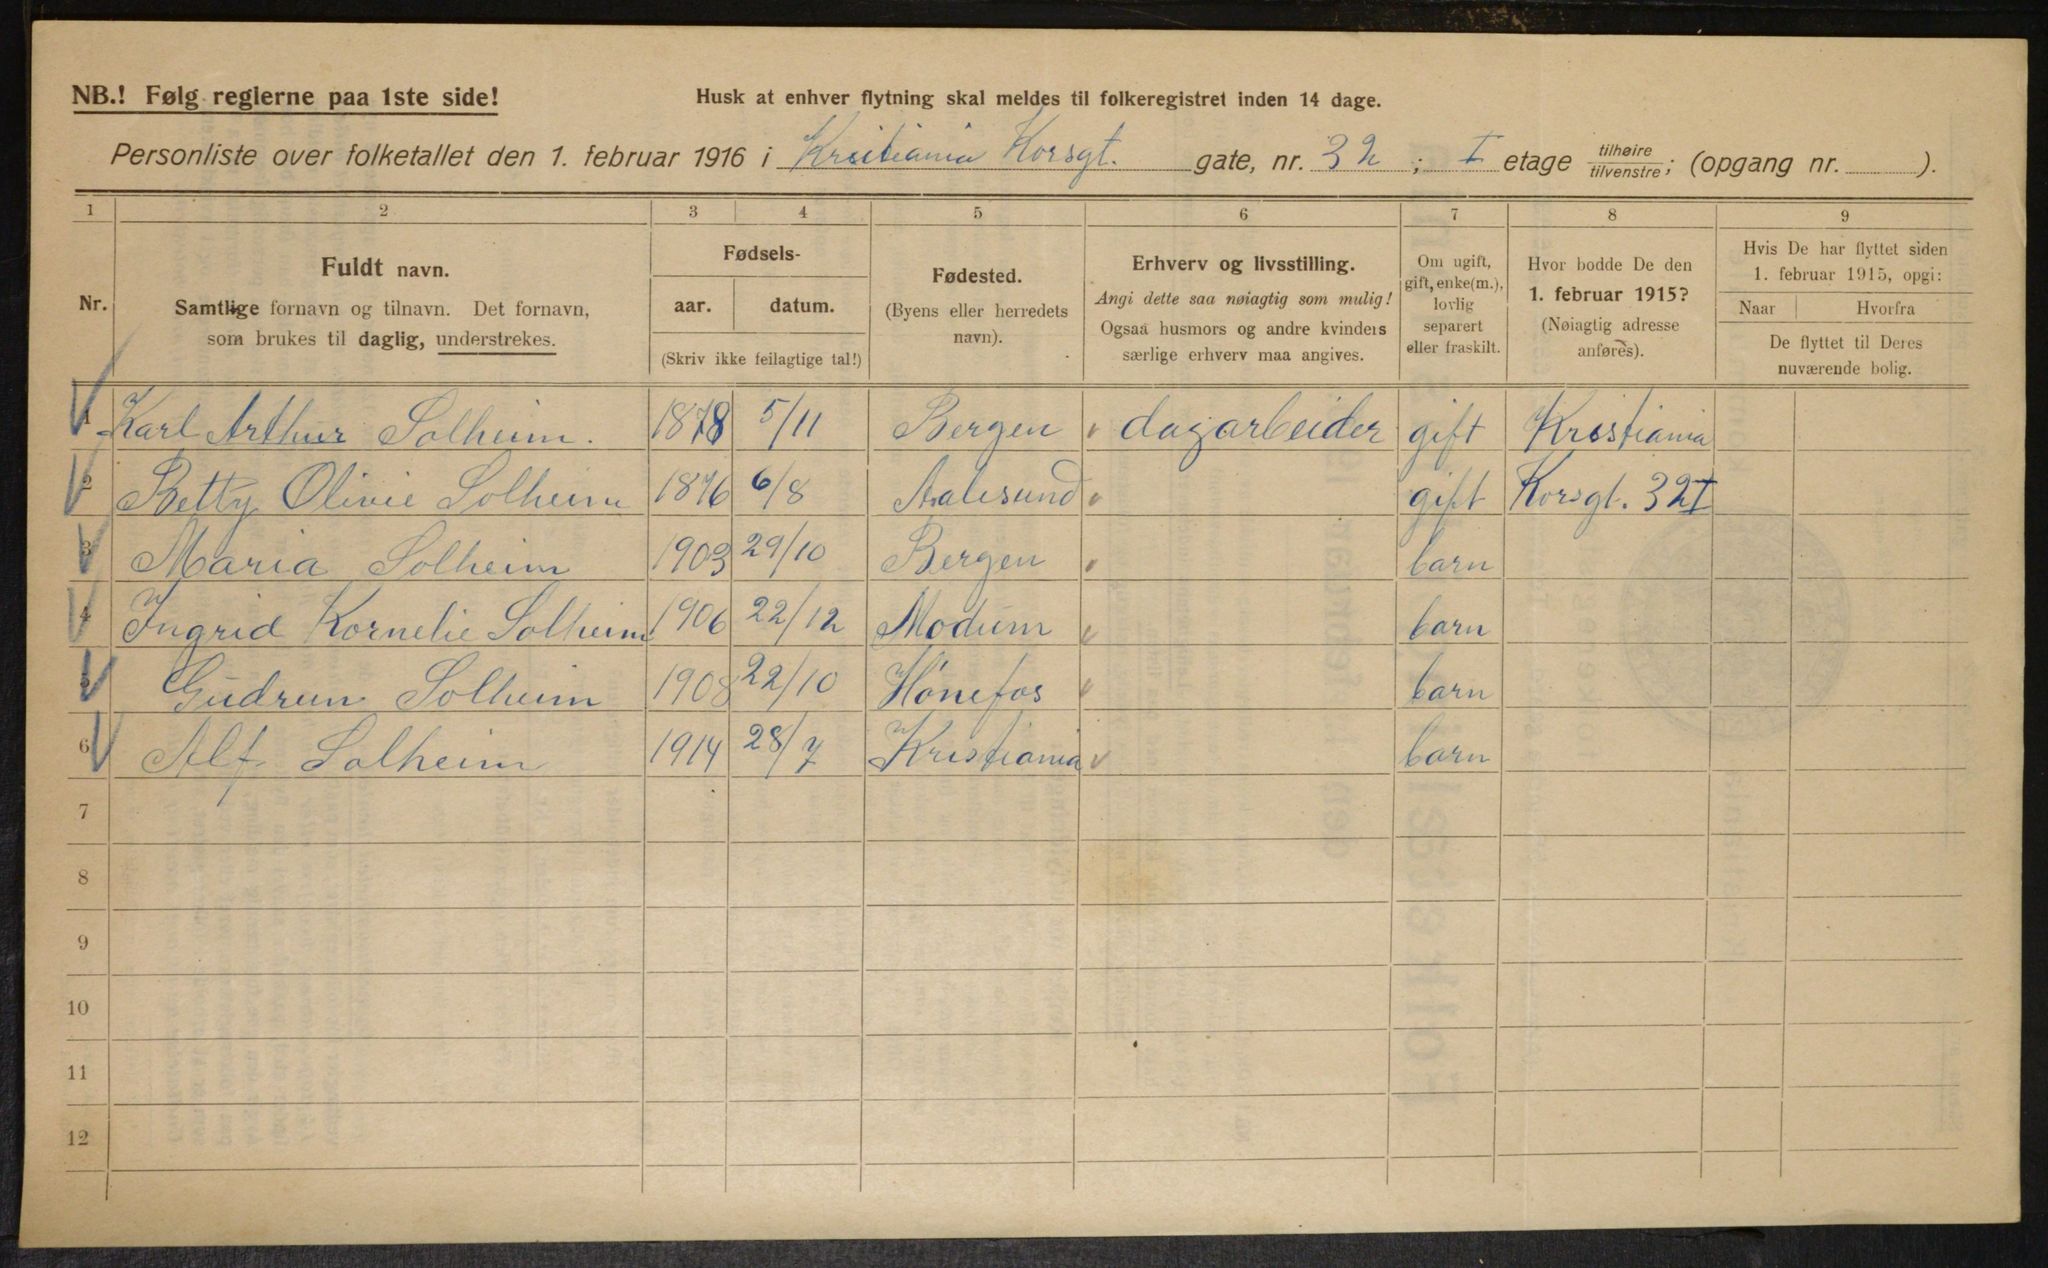 NB.! Følg reglerne paa 1ste side!
Husk at enhver flytning skal meldes til folkeregistret inden 14 dage.
Personliste over folketallet den 1. februar 1916 i Kristiania Korsgt. gate, nr. 32 ; I etage tilhøire/tilvenstre; (opgang nr. ).
1 2 3 4 5 6 7 8 9
Nr.
Fuldt navn.
Samtlige fornavn og tilnavn. Det fornavn,
som brukes til daglig, understrekes.
Fødsels-
aar. datum.
(Skriv ikke feilagtige tal!)
Fødested.
(Byens eller herredets
navn).
Erhverv og livsstilling.
Angi dette saa nøiagtig som mulig!
Ogsaa husmors og andre kvinders
særlige erhverv maa angives.
Om ugift,
gift, enke(m.),
lovlig
separert
eller fraskilt.
Hvor bodde De den
1. februar 1915?
(Nøiagtig adresse
anføres).
Hvis De har flyttet siden
1. februar 1915, opgi:
Naar Hvorfra
De flyttet til Deres
nuværende bolig.
1 Karl Arthur Solheim. 1878 5/11 Bergen dagarbeider gift Kristiania
2 Betty Olivie Solheim 1876 6/8 Aalesund gift Korsgt. 32 I
3 Maria Solheim 1903 29/10 Bergen barn
4 Ingrid Kornelie Solheim 1906 22/12 Modum barn
5 Gudrun Solheim 1908 22/10 Hónefos barn
6 Alf Solheim 1914 28/7 Kristiania barn
7
8
9
10
11
12